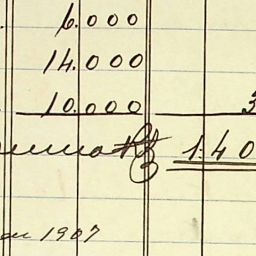 6.000
14.000
10.000 3
1:40
1907